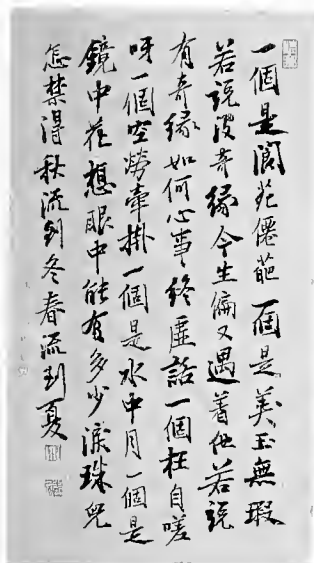 一個是閬苑僊葩一個是美玉無瑕
若說沒奇緣今生偏又遇着他若說
有奇緣如何心事終虛話一個枉自嗟
呀一個空勞牽掛一個是水中月一個是
鏡中花想眼中能有多少淚珠兒
怎禁得秋流到冬春流到夏